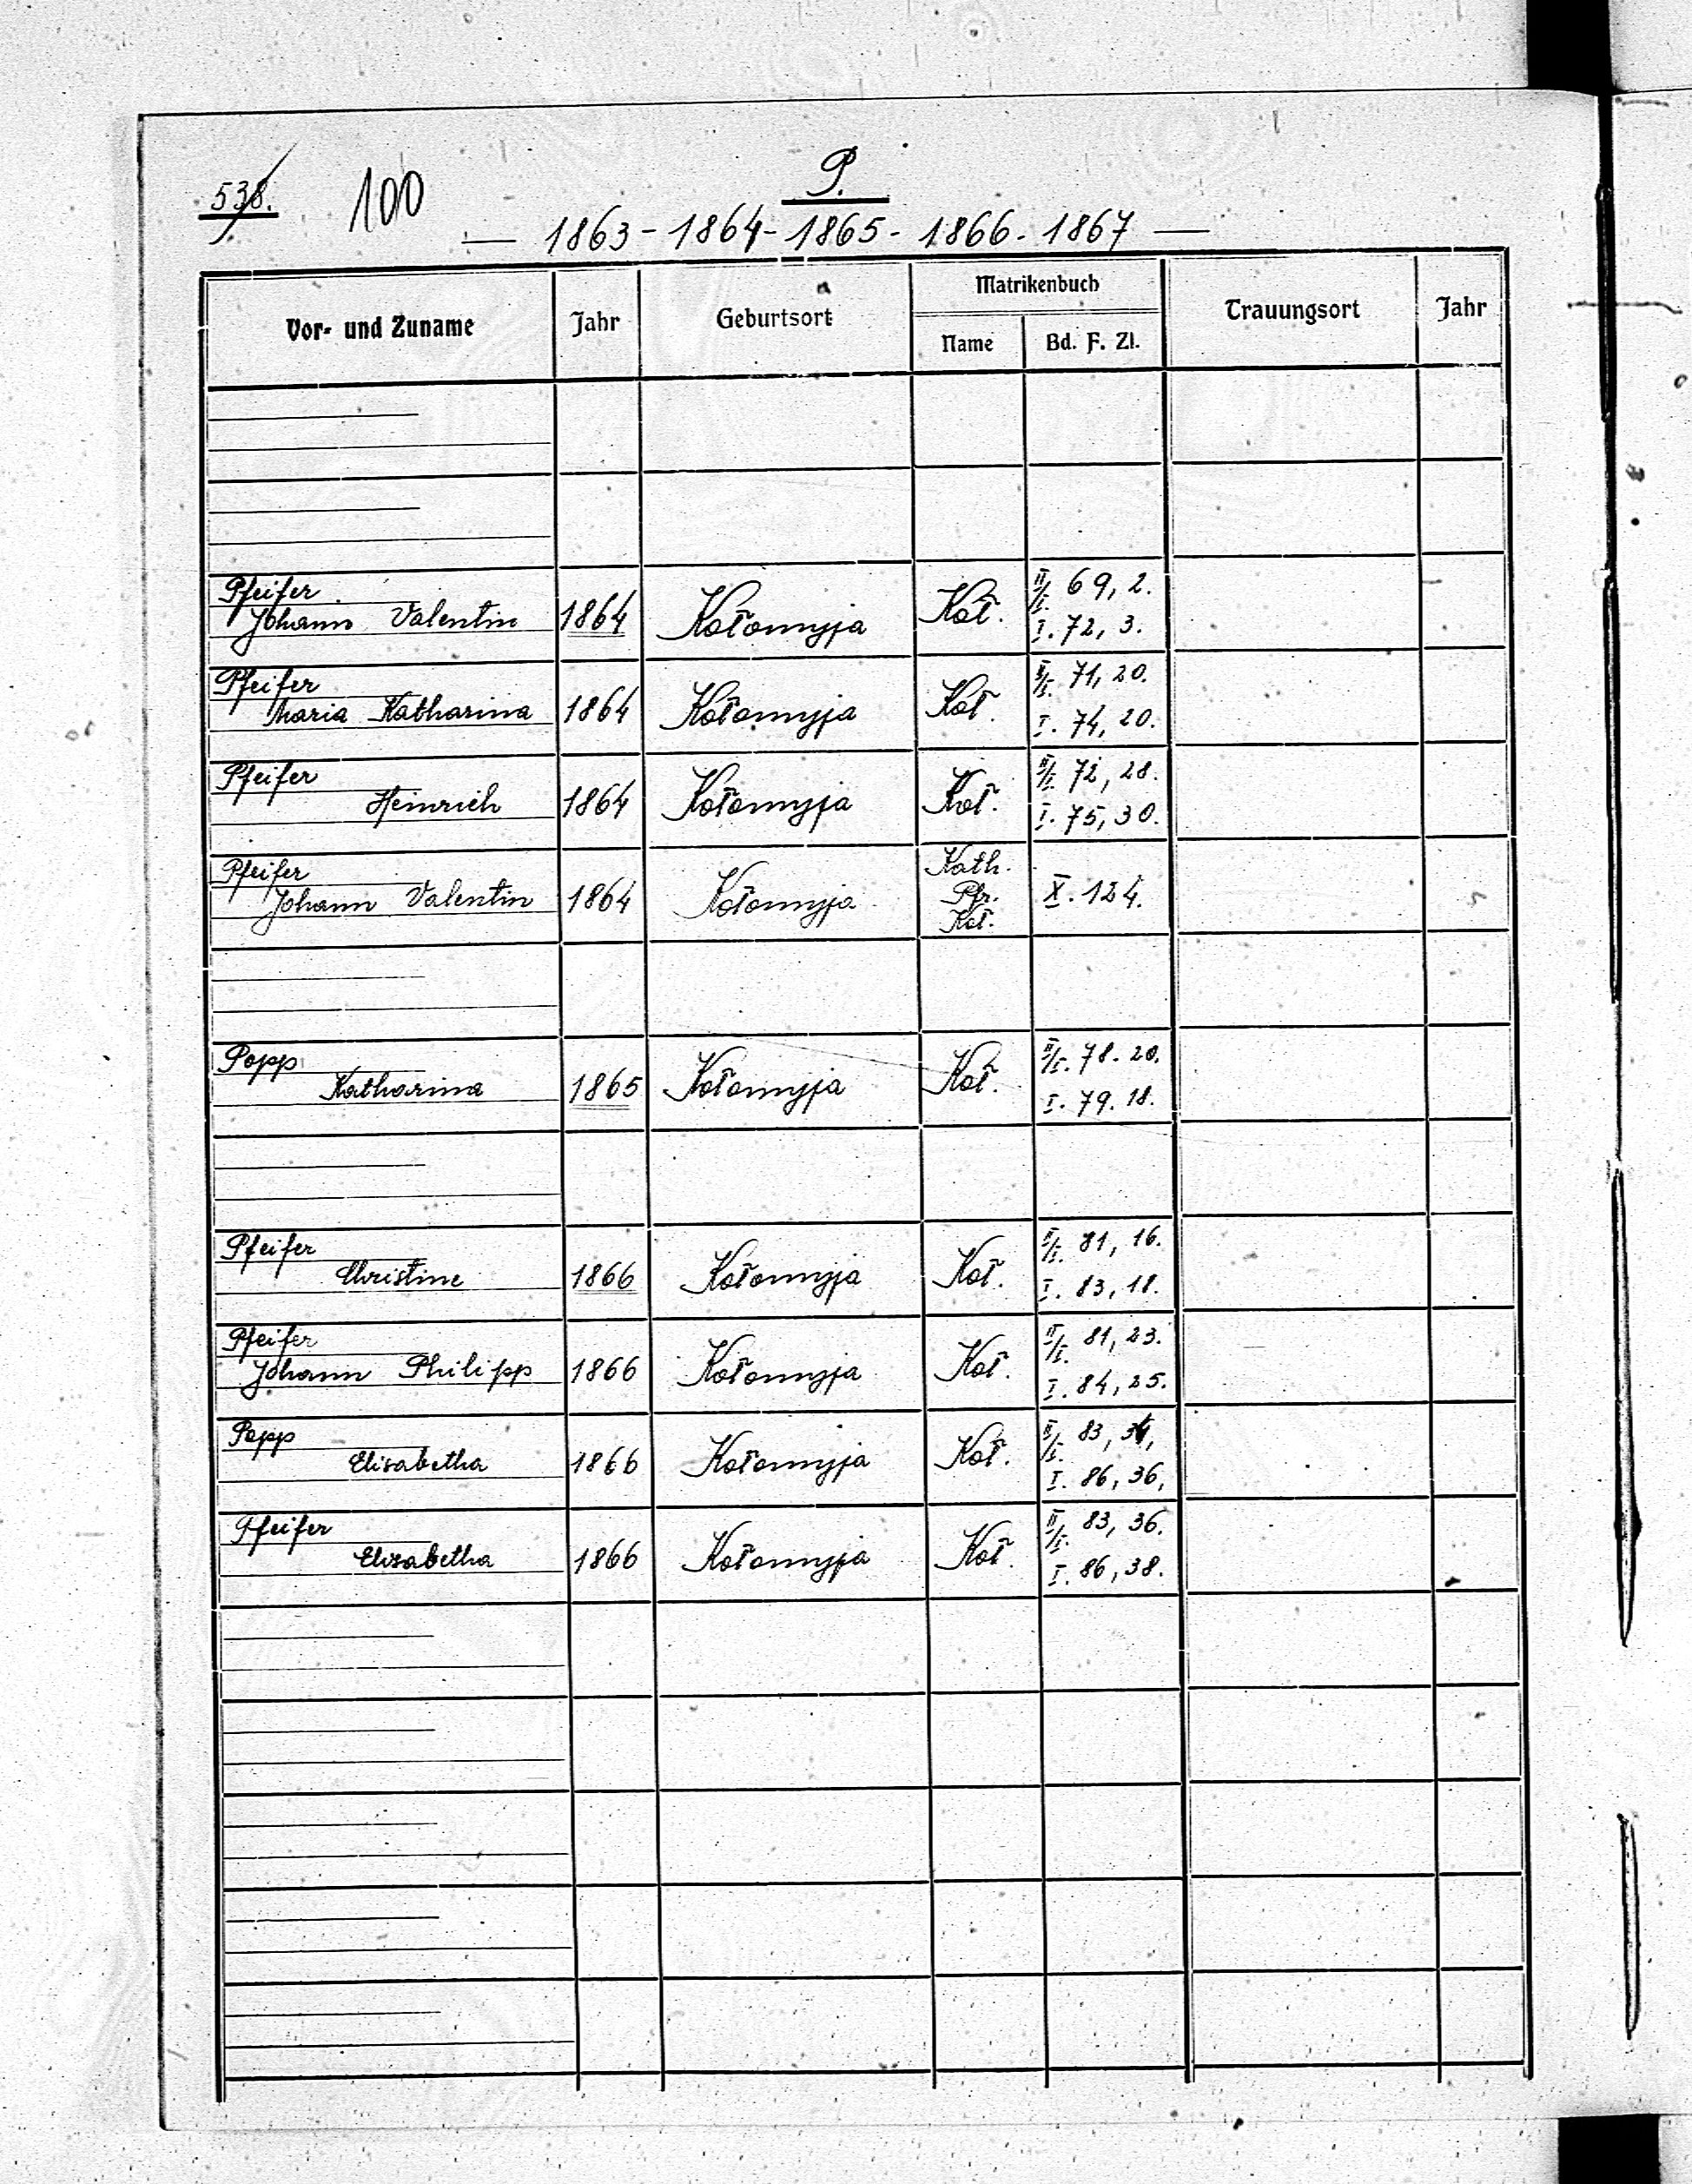 538.
100
P.
— 1863 - 1864 - 1865 - 1866 - 1867 —
Vor- und Zuname
Jahr
Geburtsort
Matrikenbuch
Name
Bd. F. Zl.
Trauungsort
Jahr
Pfeifer
Johann Valentin 1864 Kołomyja Koł. II/I. 69, 2.
I. 72, 3.
Pfeifer
Maria Katharina 1864 Kołomyja Koł. II/I. 71, 20.
I. 74, 20.
Pfeifer
Heinrich 1864 Kołomyja Koł. II/I. 72, 28.
I. 75, 30.
Pfeifer
Johann Valentin 1864 Kołomyja Kath.
Pfr. X. 124.
Koł.
Popp
Katharina 1865 Kołomyja Koł. II/I. 78. 20.
I. 79. 18.
Pfeifer
Christine 1866 Kołomyja Koł. II/I. 81, 16.
I. 83, 18.
Pfeifer
Johann Philipp 1866 Kołomyja Koł. II/I. 81, 23.
I. 84, 25.
Popp
Elisabetha 1866 Kołomyja Koł. II/I. 83, 34,
I. 86, 36,
Pfeifer
Elisabetha 1866 Kołomyja Koł. II/I. 83, 36.
I. 86, 38.